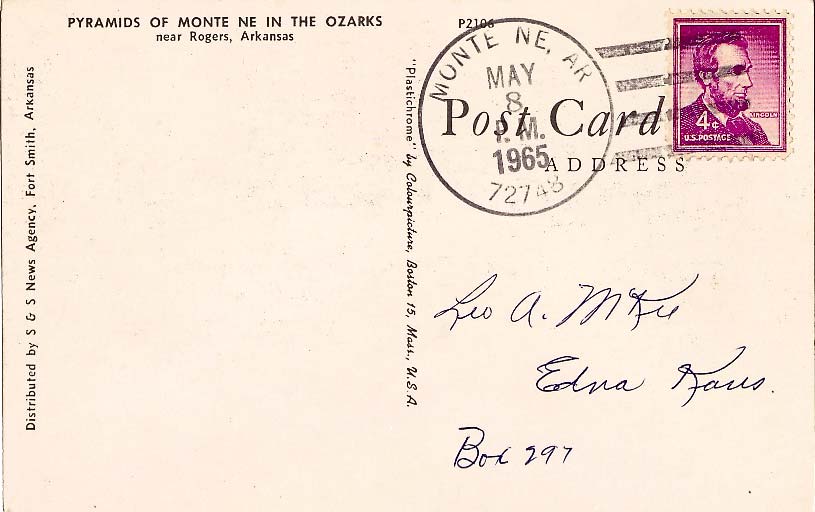 PYRAMIDS OF MONTE NE IN THE OZARKS
near Rogers, Arkansas
Distributed by S & S News Agency, Fort Smith, Arkansas
"Plastichrome" by Colourpicture, Boston 15, Mass., U.S.A.
P2106
MONTE NE, AR
MAY
8
P.M.
1965
72748
4¢
LINCOLN
U.S. POSTAGE
Post Card
ADDRESS
Leo A. McKee
Edna Kans.
Box 297